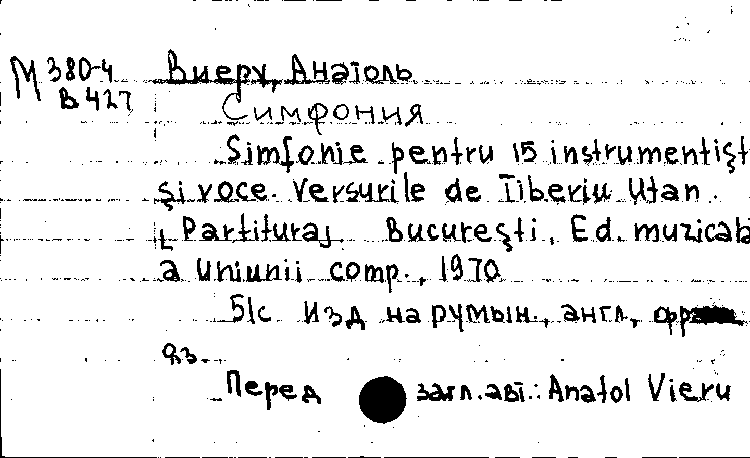 М 380-4 Виеру, Анатоль
В 427
Симфония
Simfonie pentru 15 instrumentişt
şi voce. Versurile de Tiberiu Utan.
[Partitura] Bucureşti, Ed. muzicală
a Uniunii comp., 1970
51с Изд на румын., англ.,
яз.
Перед загл. авт.: Anatol Vieru